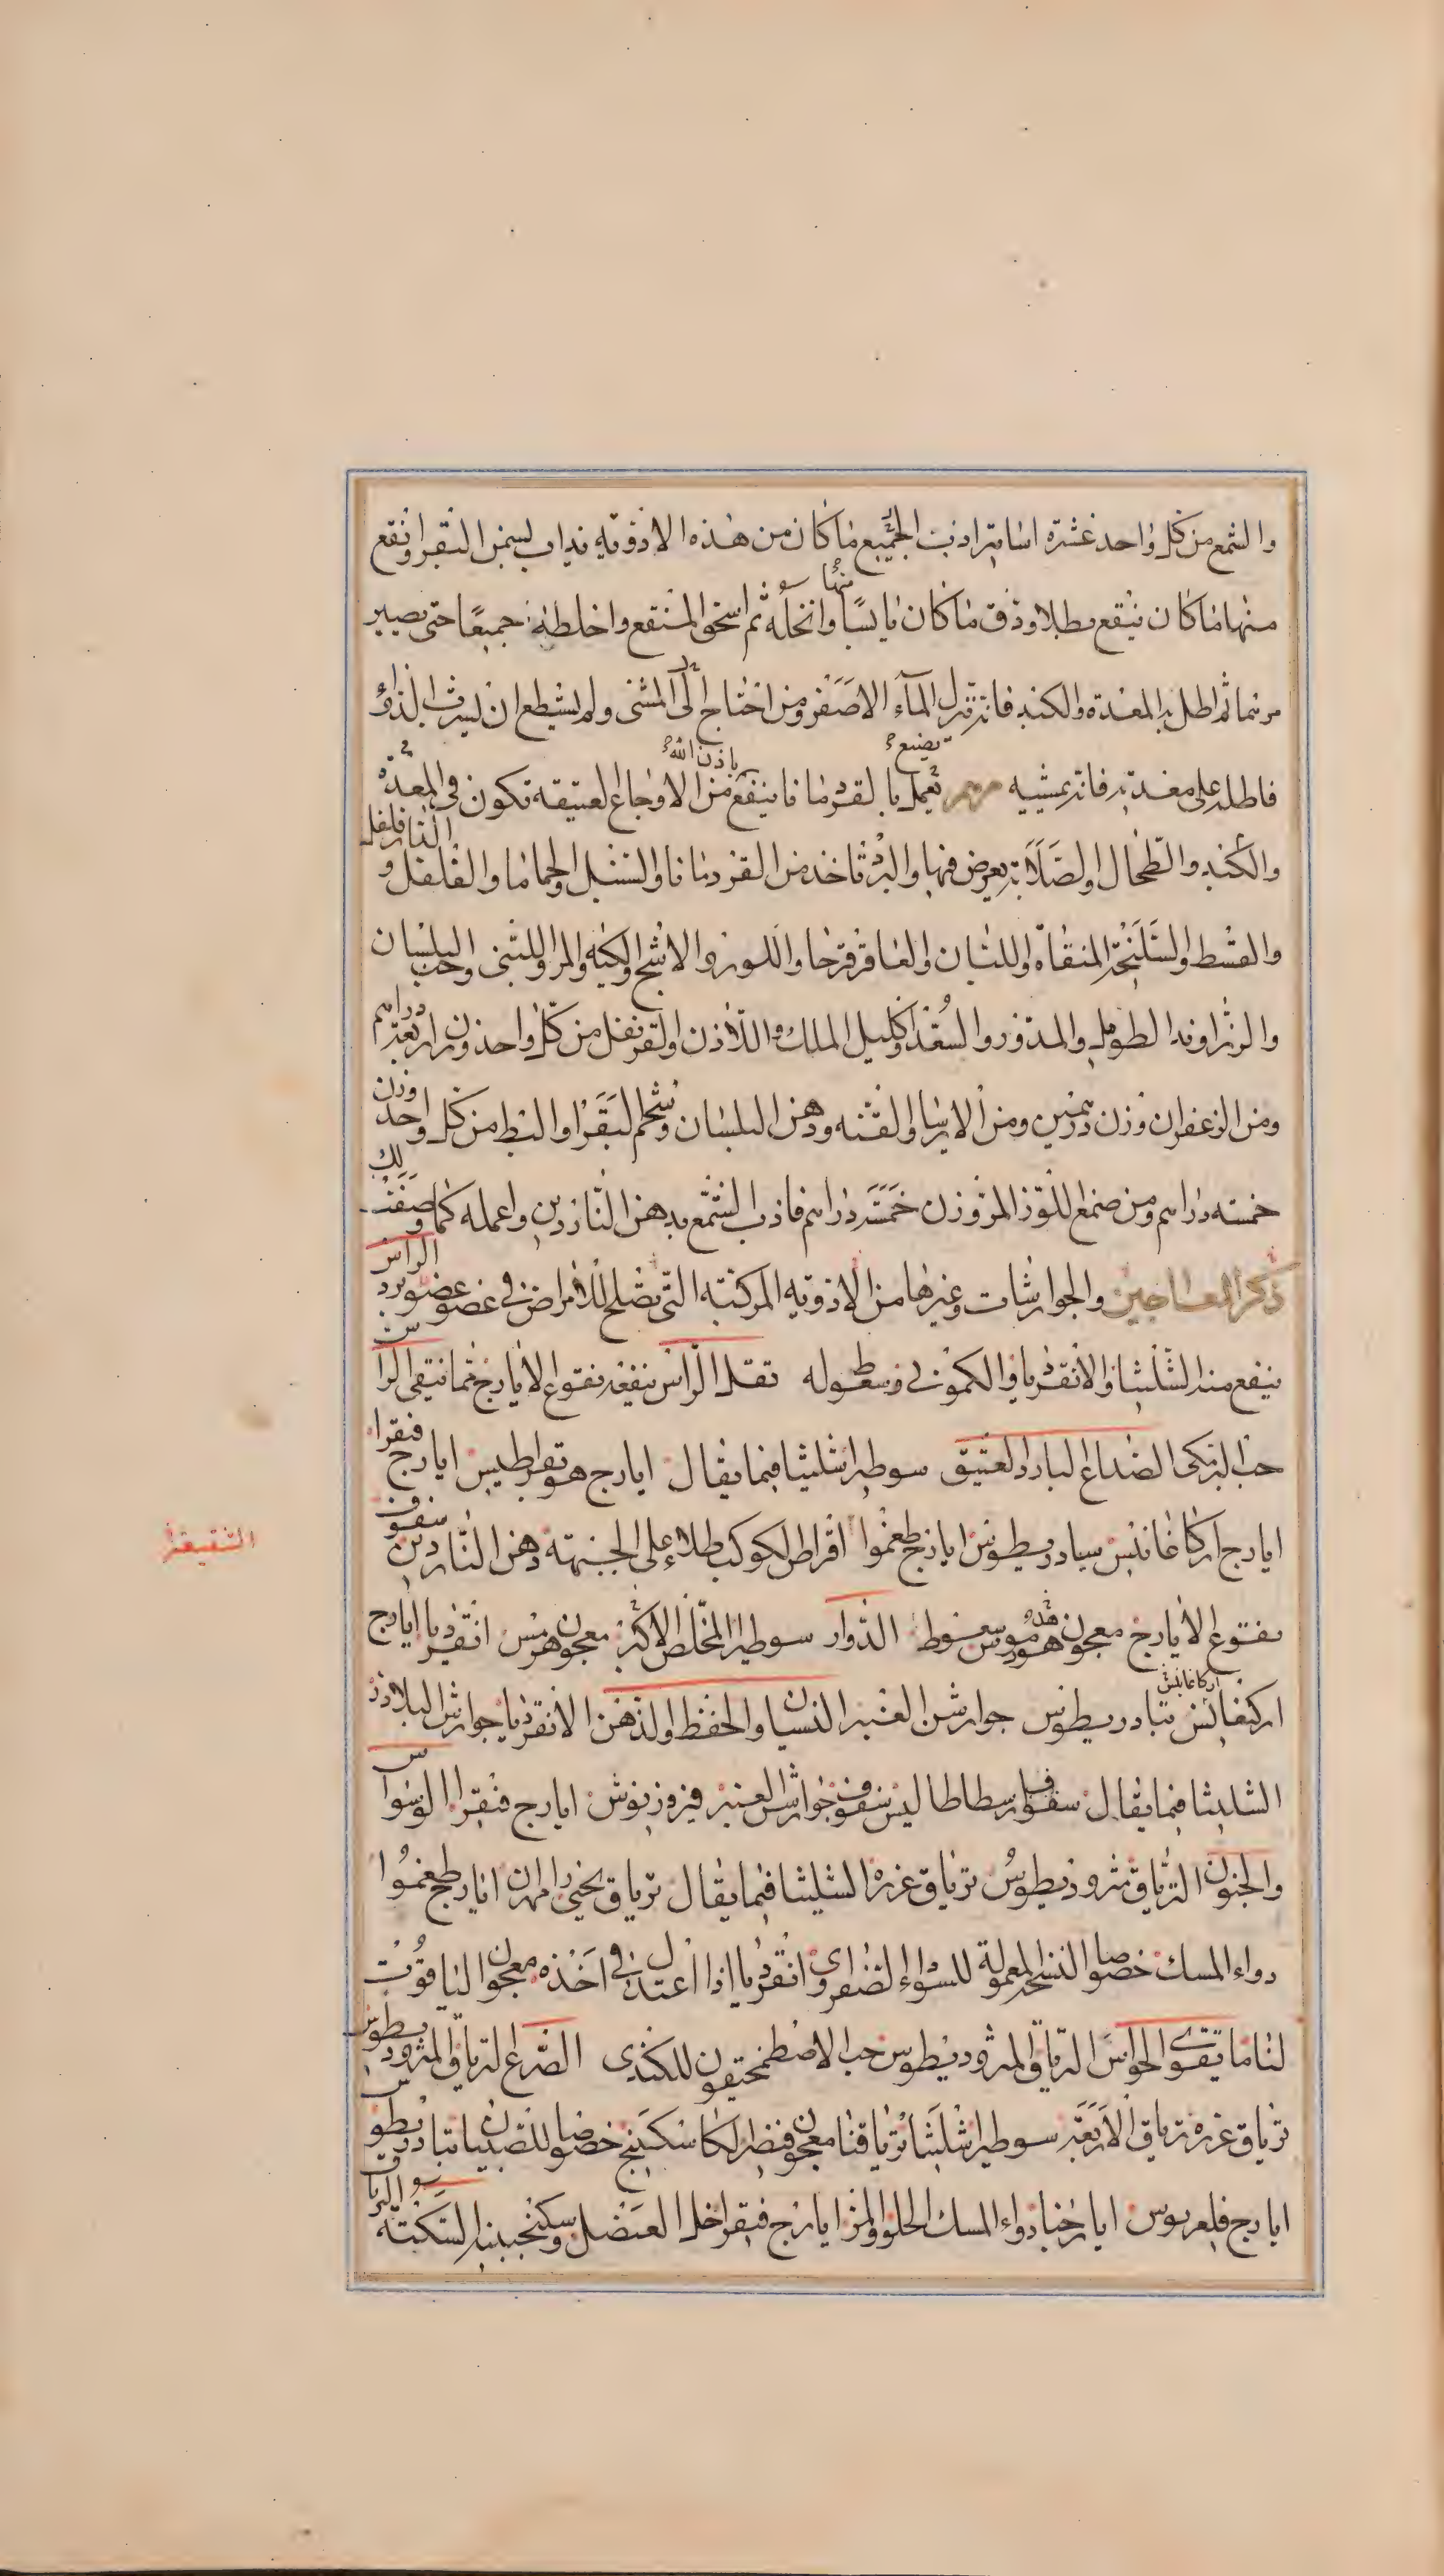 والشمع من كل واحد عشرة اساتير اذب الجميع ما كان من هذه الادوية يذاب بسمن البقر وانقع
منها ما كان ينقع بطلا ودق ما كان يابسا منها وانخله ثم اسحق المنقع واخلطه جميعا حتى يصير
مرهما ثم اطل به المعدة والكبد فانه ينزل الماء الاصفر ومن احتاج الى المشى ولم يستطع ان يشرب الدواء
فاطله على معدته فانه يمشيه مرهم يصنع يعمل بالقردمانا ينفع باذن الله من الاوجاع العتيقة تكون في المعدة
والكبد والطحال والصلابة يعرض فيها والبرد تاخذ من القردمانا والسنبل والحماما والفلفل والدارفلفل
والقسط والسليخة المنقاة واللبان والعاقرقرحا واللوز والاشج والكيه والمر واللبنى وحب البلسان
والزراوند الطويل والمدور والسعد واكليل الملك واللاذن والقرنفل من كل واحد وزن اربعة دراهم
ومن الزعفران وزن درهمين ومن الايرسا والقنه ودهن البلسان وشحم البقر او البط من كل واحد وزن
خمسه دراهم ومن صمغ اللوز المر وزن خمسة دراهم فاذب الشمع بدهن الناردين واعمله كما وصفت لك
ذكر المعاجين والجوارشات وغيرها من الادويه المركبة التي تصلح للامراض في عضو عضو برد الراس
ينفع منه الشليثا والانقرديا والكموني وسعوطه ثقل الراس ينفعه نقوع الايارج فما ينقي الراس
حب البرمكي الصداع البارد العتيق سوطيرا شليثا فيما يقال ايارج هوبقراطيس ايارج فيقرا
ايارج اركاغانيس تيادريطوس ايارج طغموا اقراص الكوكب طلاء على الجبهة دهن الناردين سفوف
الشقيقة
نقوع الايارج معجون هرمس سعوط الدوار سوطيرا المخلص الاكبر معجون هرمس انقرديا ايارج
اركيغانيس اركاغانيس تيادريطوس جوارشن العنبر النسيان والحفظ والذهن الانقرديا جوارش البلاذر
الشليثا فيما يقال سفوف ارسطاطاليس سفوف جوارش العنبر فيروزنوش ايارج فيقرا الوسواس
والجنون الترياق مثروديطوس ترياق عزره الشليثا فيما يقال ترياق يحيى رامهران ايارج طغموا
دواء المسك خصوصا النسخة المعمولة للسوداء الصفراوى انقرديا اذا اعتدل في اخذه معجون الياقوت
لنا ما يقوى الحواس الترياق المثروديطوس حب الاصطمخيقون للكندى الصرع الترياق المثروديطوس
ترياق عزره ترياق الاربعة سوطيرا شليثا ترياقنا معجون قيصر الكاسكبينج خصوصا للصبيان تيادريطوس
ايارج فلغريوس ايارجنا دواء المسك الحلو والمر ايارج فيقرا خل العنصل وسكنجبينه السكتة الترياق